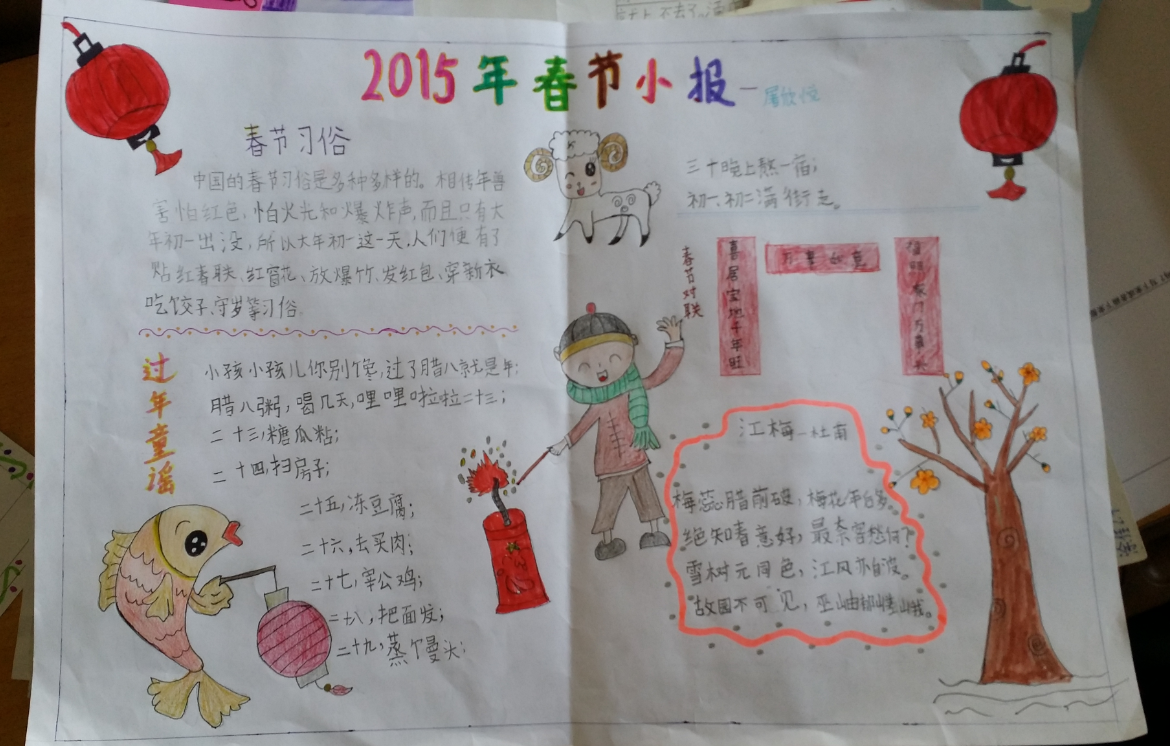 2015年春节小报
春节习俗
中国的春节习俗是多种多样的。相传年兽
害怕红色、怕火光和爆炸声,而且只有大
年初一出没,所以大年初一这一天,人们便有了
贴红春联、红窗花、放爆竹、发红包、穿新衣
吃饺子、守岁等习俗.
过年童谣
小孩小孩儿你别馋,过了腊八就是年;
腊八粥,喝几天,哩哩啦啦二十三;
二十三,糖瓜粘;
二十四,扫房子;
二十五,冻豆腐;
二十六,去买肉;
二十七,宰公鸡;
二十八,把面发;
二十九,蒸馒头;
三十晚上熬一宿;
初一、初二满街走。
春节对联
喜居宝地千年旺
万事如意
福照家门万事兴
江梅—杜甫
梅蕊腊前破,梅花年后多。
绝知春意好,最奈客愁何?
雪树元同色,江风亦自波。
故园不可见,巫岫郁嵯峨。